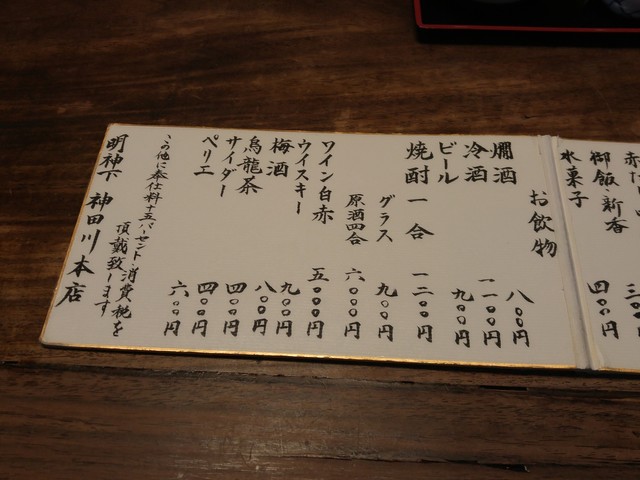 御飯・新香 四〇〇円
水菓子
お飲物
燗酒 八〇〇円
冷酒 一一〇〇円
ビール 九〇〇円
焼酎 一合 一二〇〇円
グラス 九〇〇円
原酒四合 六〇〇〇円
ワイン白赤 五〇〇〇円
ウイスキー 九〇〇円
梅酒 八〇〇円
烏龍茶 四〇〇円
サイダー 四〇〇円
ペリエ 六〇〇円
この他に奉仕料十五パーセント・消費税を
頂戴致します
明神下 神田川本店